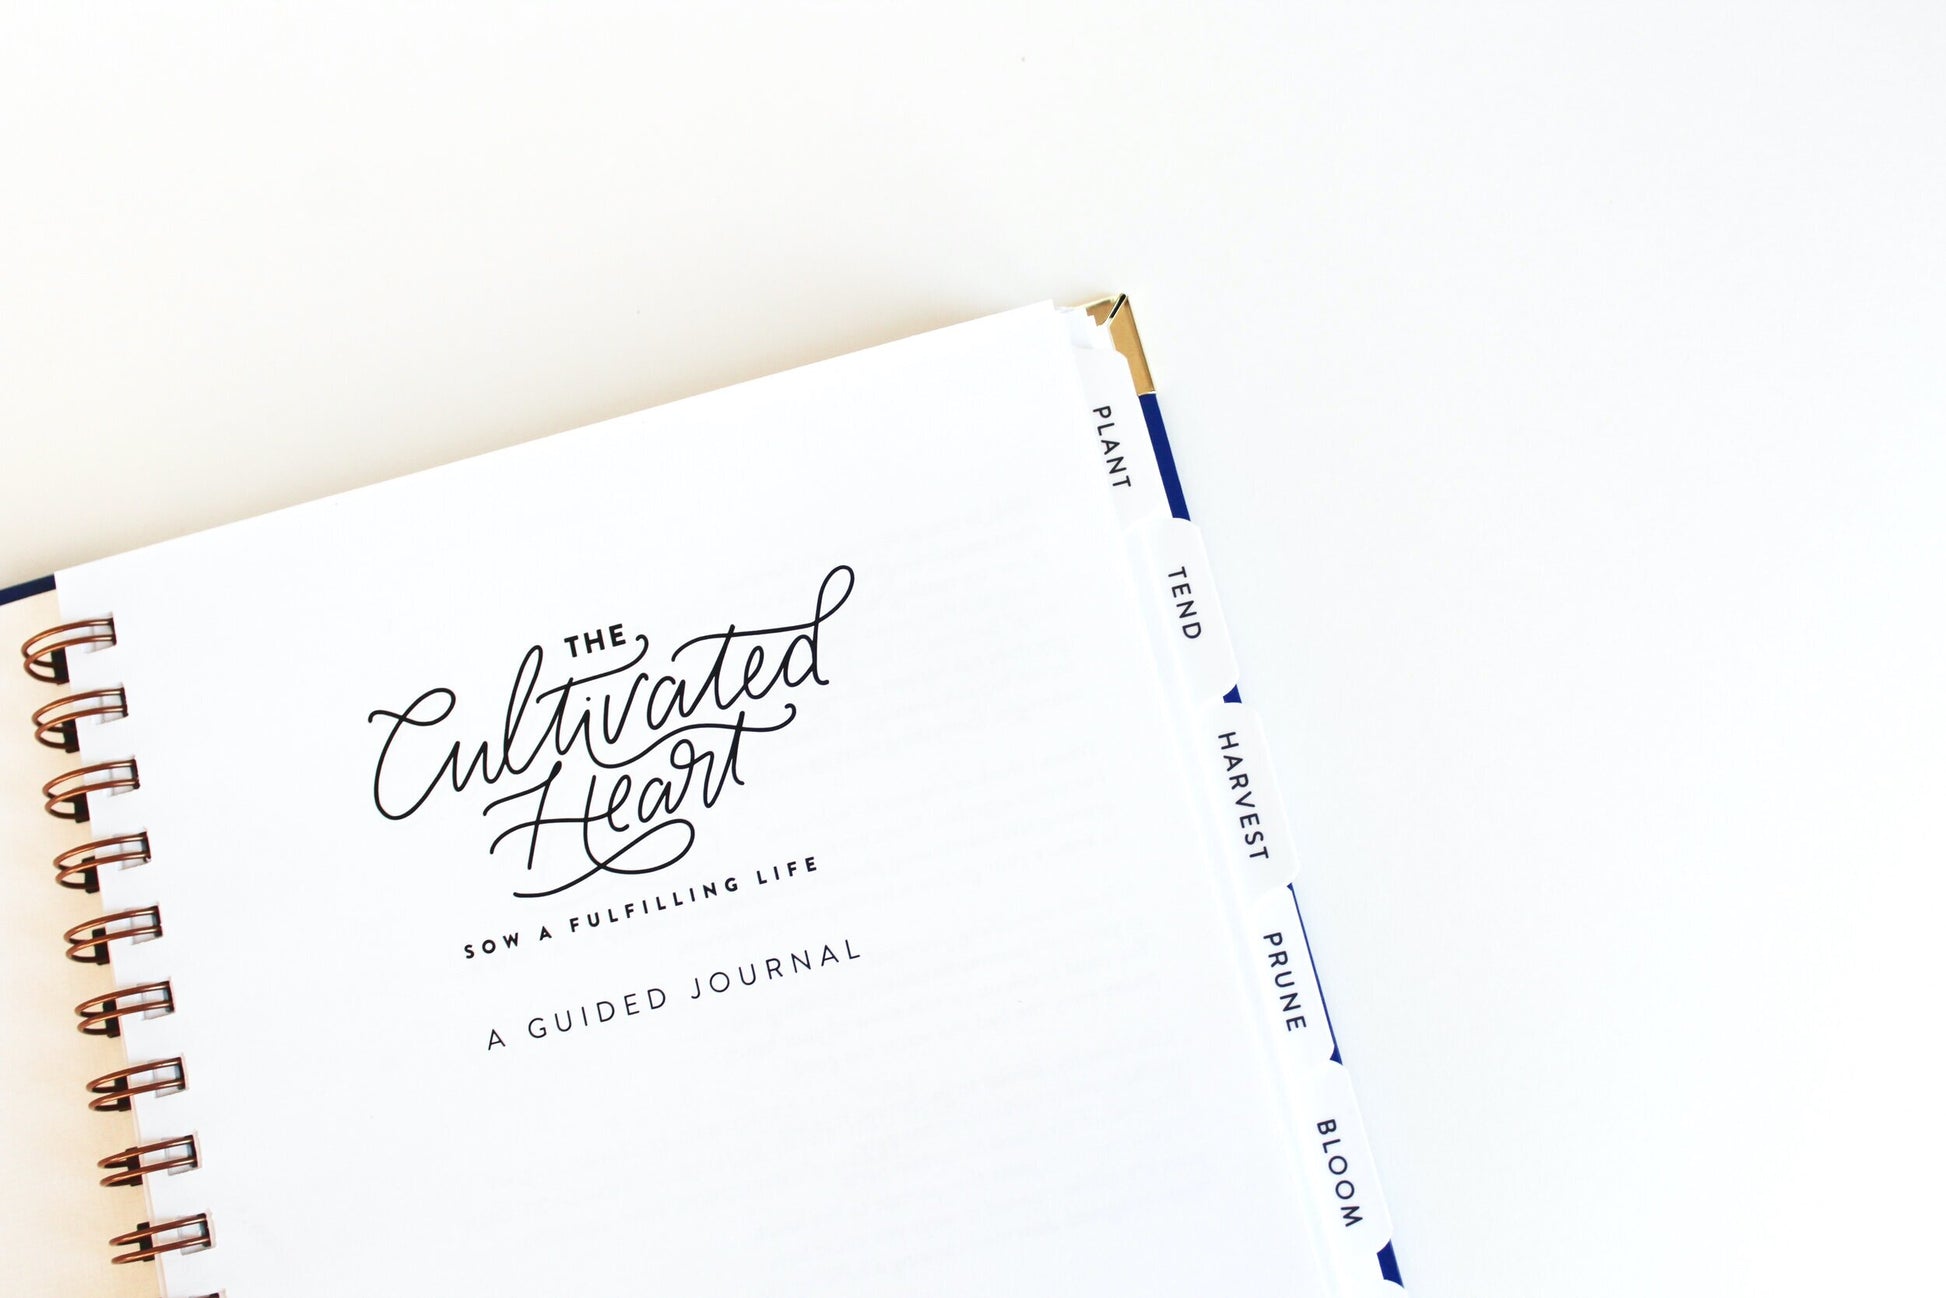 THE
Cultivated
Heart
SOW A FULFILLING LIFE
A GUIDED JOURNAL
PLANT
TEND
HARVEST
PRUNE
BLOOM